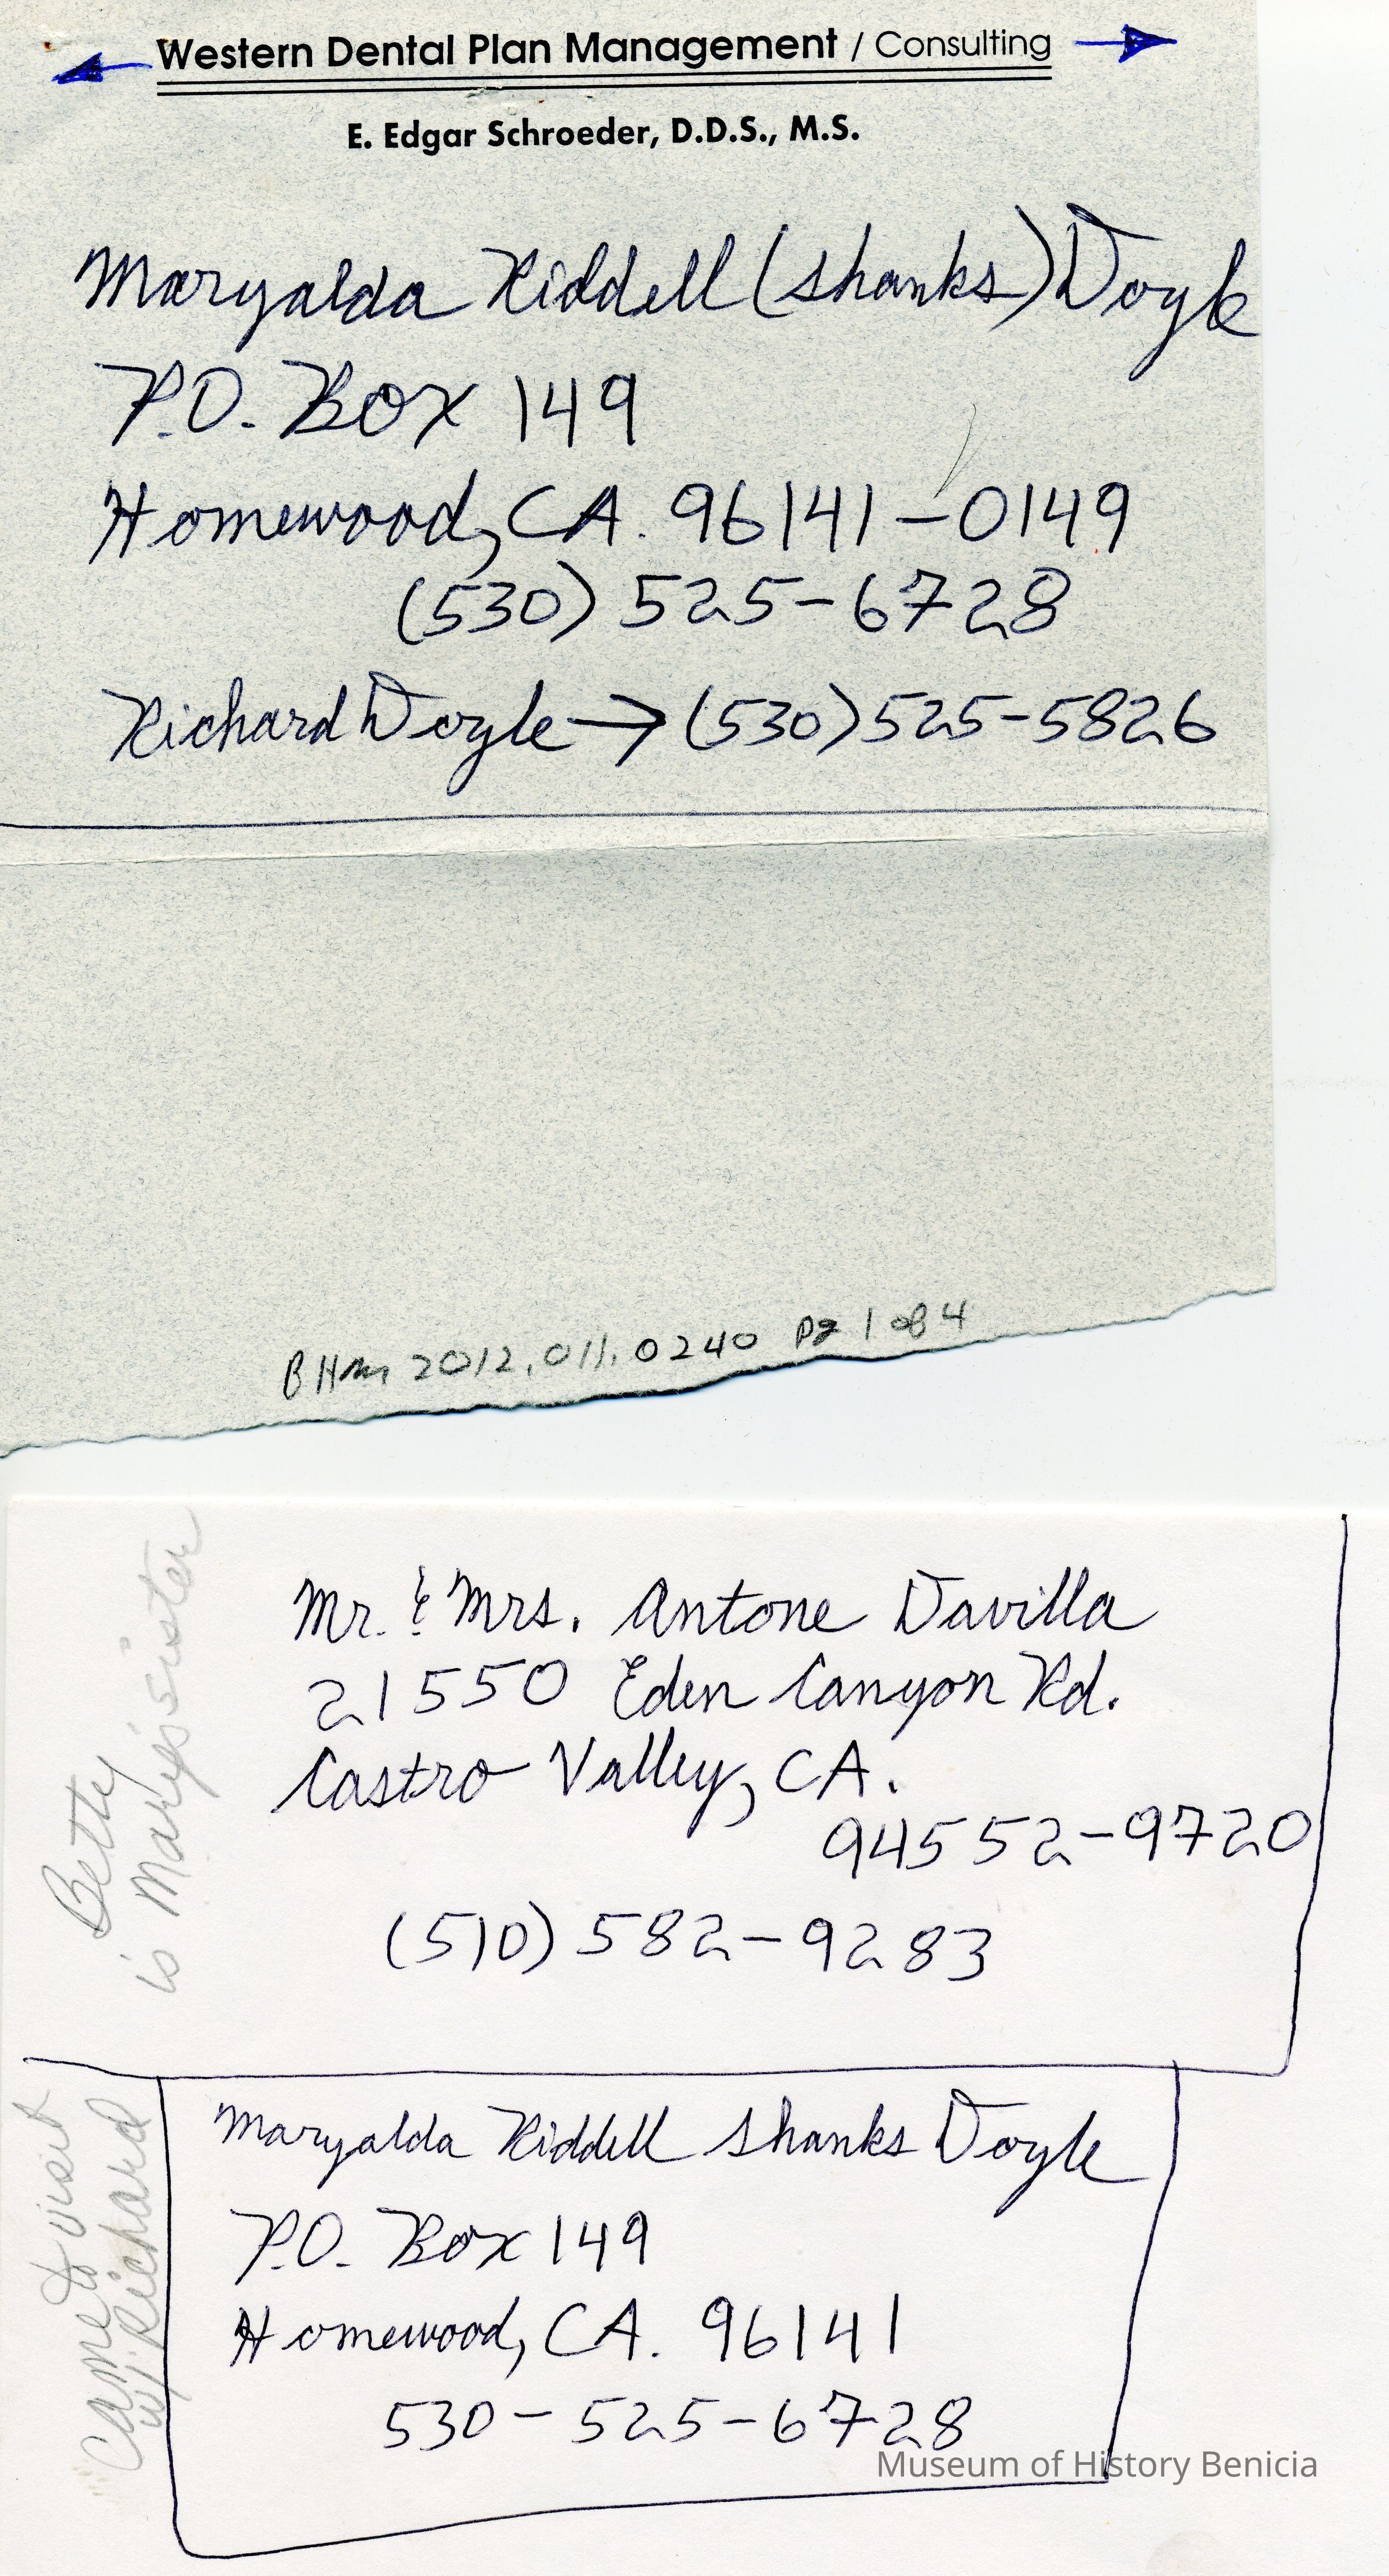 Western Dental Plan Management / Consulting
E. Edgar Schroeder, D.D.S., M.S.
Maryalda Riddell (Shanks) Doyle
P.O. Box 149
Homewood, CA. 96141-0149
(530) 525-6728
Richard Doyle → (530) 525-5826
BHM 2012.011.0240 pg 1 of 4
Betty
is Mary's sister
Mr. & Mrs. Antone Davilla
21550 Eden Canyon Rd.
Castro Valley, CA.
94552-9720
(510) 582-9283
Came to visit
w/ Richard
Maryalda Riddell Shanks Doyle
P.O. Box 149
Homewood, CA. 96141
530-525-6728
Museum of History Benicia